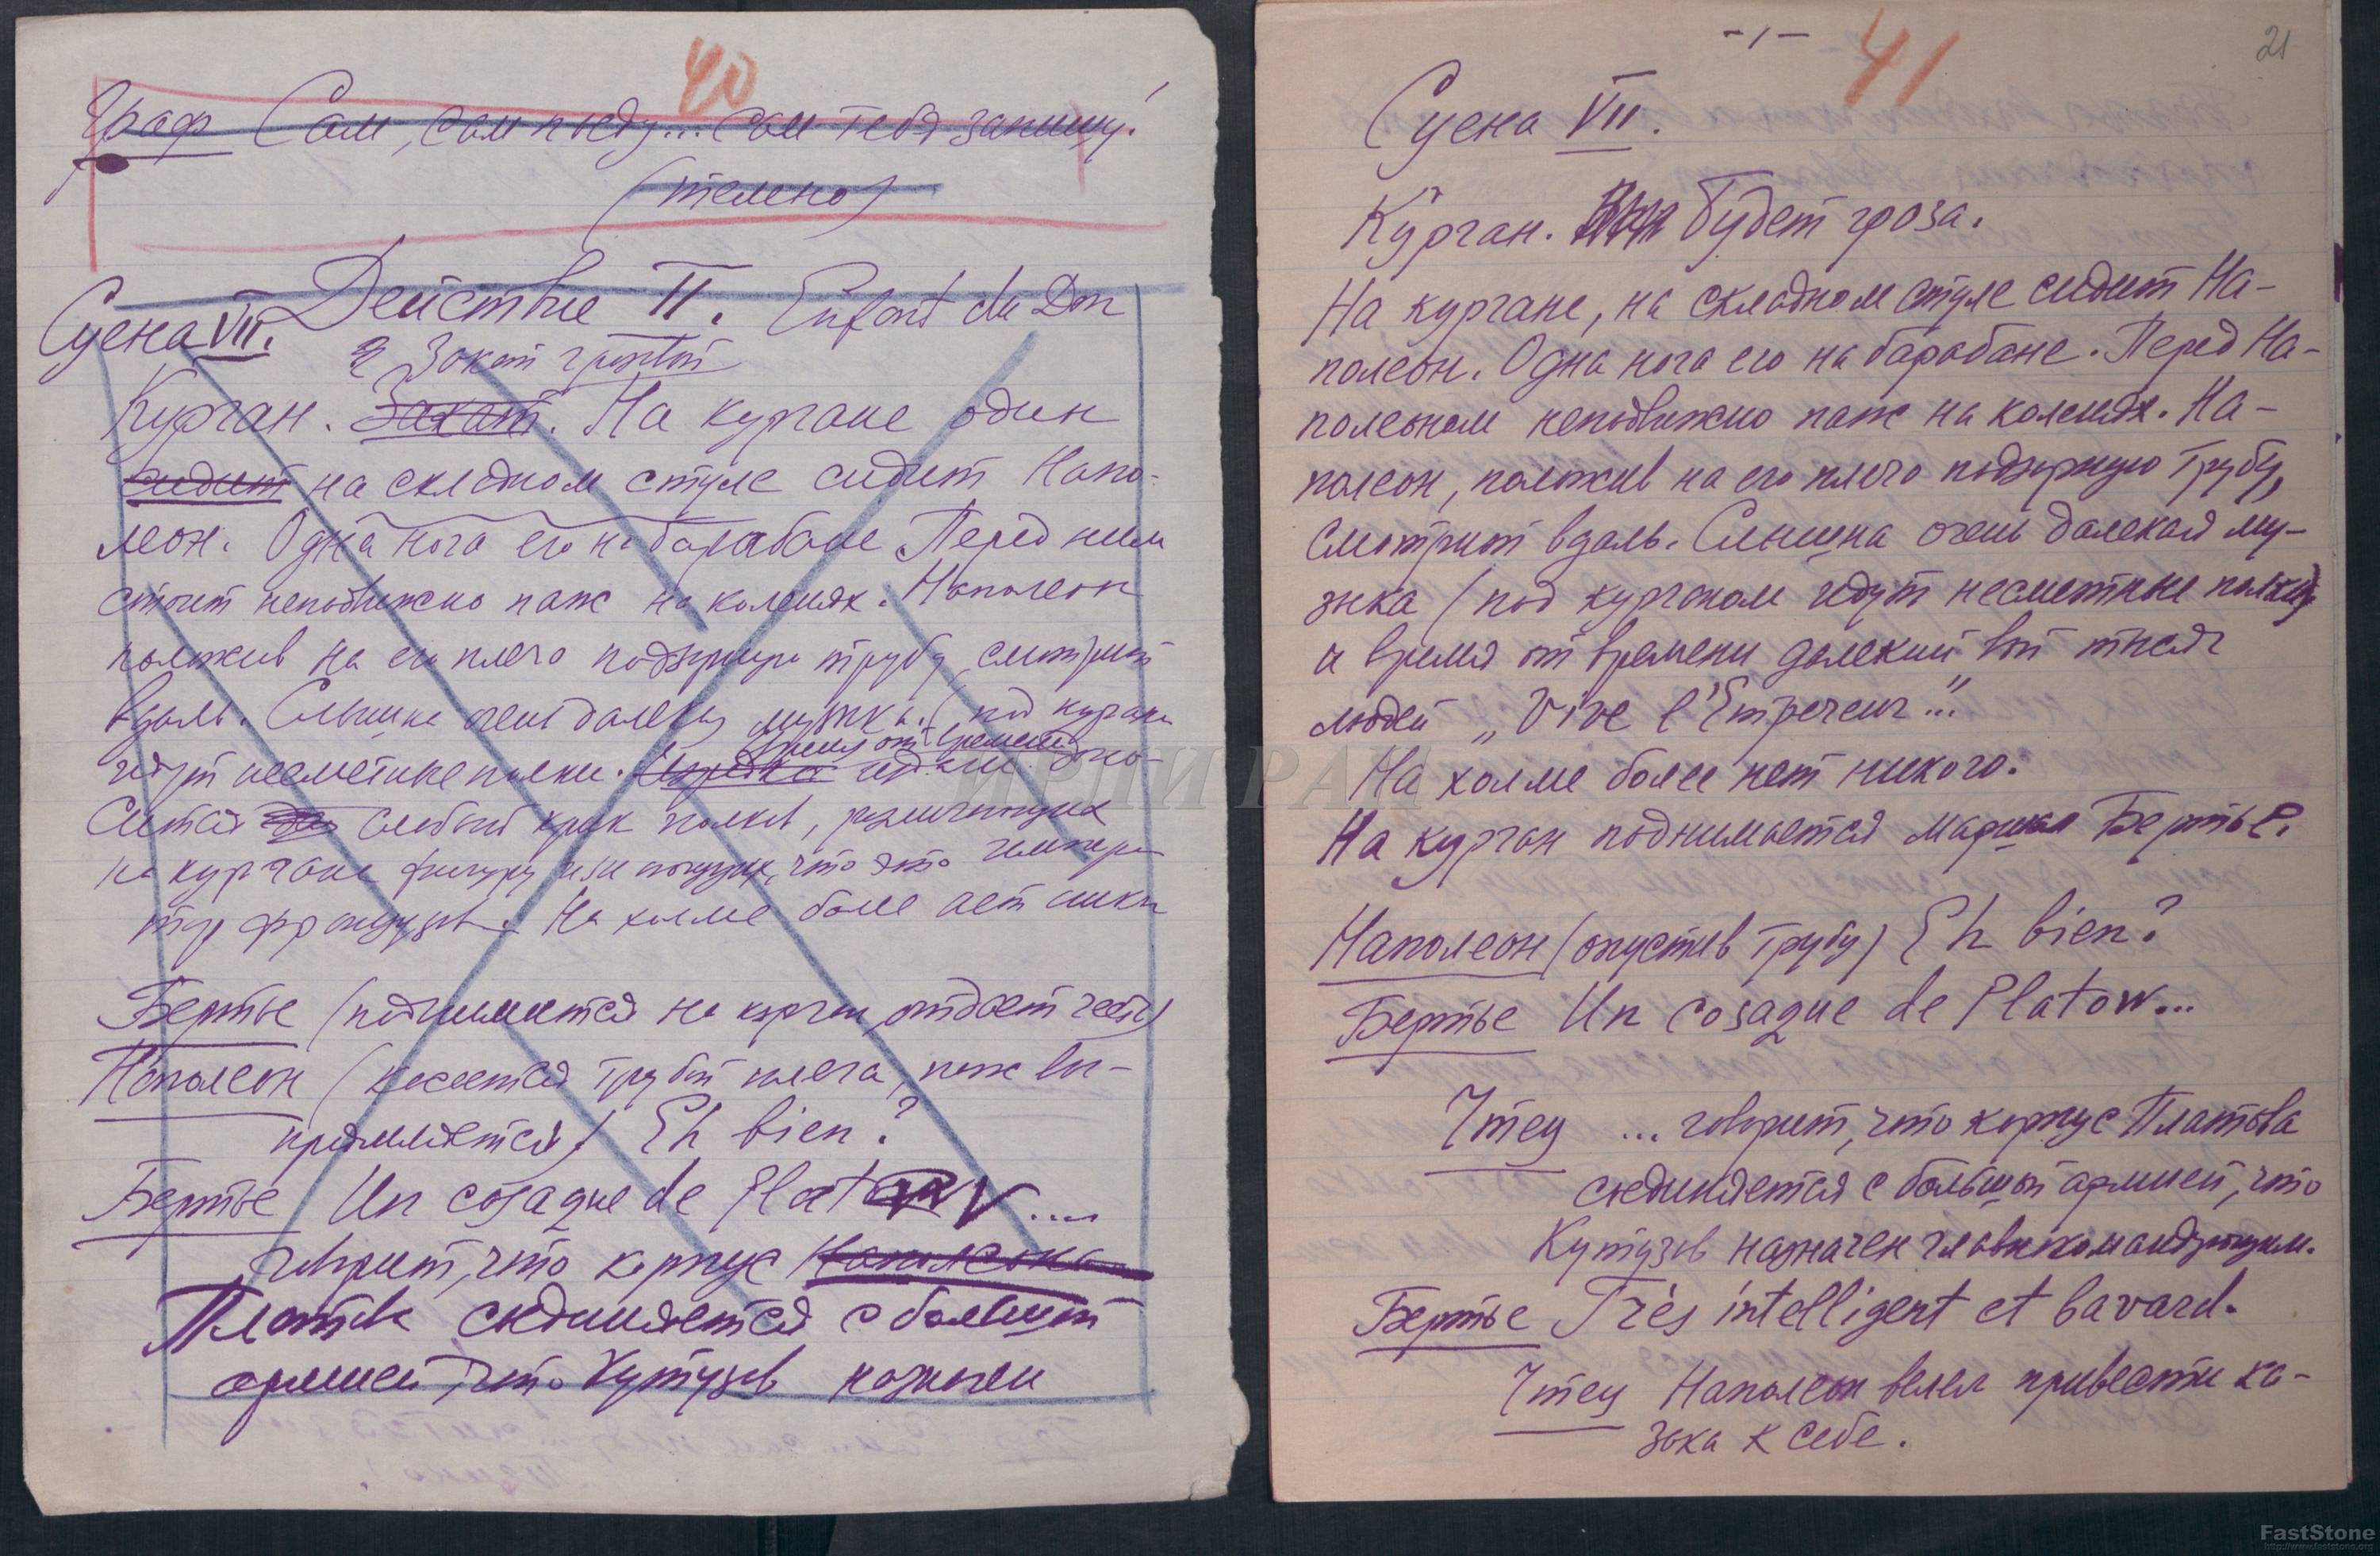 40
Граф Сам, сам поеду... сам тебя запишу!
(темно)
Действие II. Enfant du Don
Сцена VII.
Закат
Курган. Закат. На кургане один
сидит на складном стуле сидит Напо-
леон. Одна нога его на барабане. Перед ним
стоит неподвижно паж на коленях. Наполеон
положив на его плечо подзорную трубу смотрит
вдаль. Слышна очень далекая музыка. (под курганом
время от времени
идут несметные полки. Изредка доно-
сится слабый крик полков,
на кургане фигуру или что это импера
тор французов. На холме более нет нико
Бертье (поднимается на курган, отдает честь)
Наполеон (касается трубой плеча, паж вы-
прямляется) Eh bien?
Бертье Un cosaque de Platow....
говорит, что корпус Наполеона
Платова соединяется с большой
армией, что Кутузов назначен
-1-
41
21
Сцена VII.
Курган. Будет гроза.
На кургане, на складном стуле сидит На-
полеон. Одна нога его на барабане. Перед На-
полеоном неподвижно паж на коленях. На-
полеон, положив на его плечо подзорную трубу,
смотрит вдаль. Слышна очень далекая му-
зыка (под курганом идут несметные полки)
и время от времени далекий вой тысяч
людей „Vive l'Empereur"...
На холме более нет никого.
На курган поднимается маршал Бертье.
Наполеон (опустив трубу) Eh bien?
Бертье Un cosaque de Platow...
Чтец ... говорит, что корпус Платова
соединяется с большой армией, что
Кутузов назначен главнокомандующим.
Бертье Très intelligent et bavard.
Чтец Наполеон велел привести ка-
зака к себе.
ИРЛИ РАН
FastStone